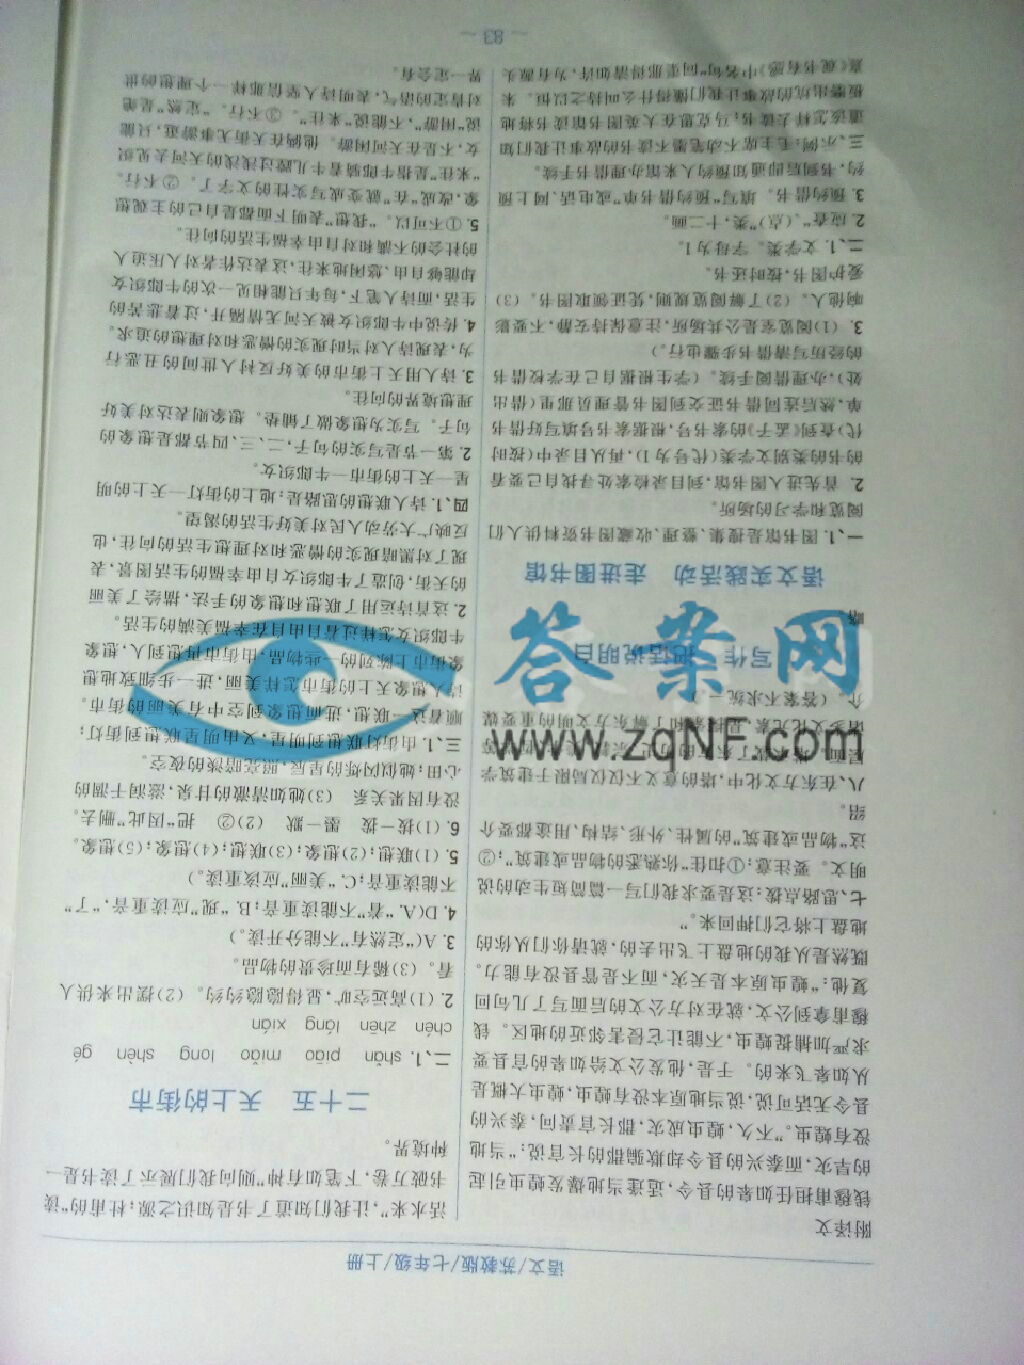 语文/苏教版/七年级/上册
附译文
钱穆甫担任如皋的县令,适逢当地爆发蝗虫引起
的旱灾,而泰兴的县令却欺骗郡的长官说:"当地
没有蝗虫。"不久,蝗虫成灾,郡长官责问,泰兴的
县令无话可说,说当地原本没有蝗虫,蝗虫大概是
从如皋飞来的。于是,他发公文给如皋的官县要
求严加捕捉蝗虫,不能让它侵害邻近的地区。钱
穆甫拿到公文,就在对方公文的后面写了几句回
复他:"蝗虫原本是天灾,而不是管县没有能力。
既然是从我的地盘上飞出去的,就请你们从你的
地盘上将它们押回来。"
七、思路点拨:这是要求我们写一篇简短生动的说
明文。要注意:①扣住"你熟悉的物品或建筑";②
这"物品或建筑"的属性、外形、结构、用途都要介
绍。
八、在东方文化中,塔的意义不仅仅局限于建筑学
介。(答案不求统一)
写作 把话说明白
略
语文实践活动 走进图书馆
一、1. 图书馆是搜集、整理、收藏图书资料供人们
阅览和学习的场所。
2. 首先进入图书馆,到目录检索处寻找自己要看
的书的类别文学类(代号为 I),再从目录中(按时
代)查到《孟子》的索书号,根据索书号填写好借书
单,然后连同借书证交到图书管理员那里(借出
处),办理借阅手续。(学生根据自己在学校借书
的经历写清借书步骤也行。)
3. (1)阅览室是公共场所,注意保持安静,不要影
响他人。(2)了解阅览规则,凭证领取图书。(3)
爱护图书,按时还书。
二、1. 文学类。字母为 I。
2. 应查"、(点)"类,十二画。
3. 预约借书。填写"预约借书单"或电话、网上预
约,书到后即通知预约人来馆办理借书手续。
三、示例:毛主席不动笔墨不读书的故事让我们知
道该怎样去读书;马克思在大英图书馆读书将地
板磨出坑的故事让我们懂得什么叫持之以恒。朱
熹《观书有感》中名句"问渠那得清如许,为有源头
活水来",让我们知道了书是知识之源;杜甫的"读
书破万卷,下笔如有神"则向我们展示了读书是一
种境界。
二十五 天上的街市
二、1. shǎn piāo miǎo long shèn gé
chén zhēn láng xián
2. (1)高远空旷,显得隐隐约约。(2)摆出来供人
看。(3)稀有而珍贵的物品。
3. A("定然有"不能分开读。)
4. D(A. "着"不能读重音;B. "现"应读重音,"了"
不能读重音;C. "美丽"应该重读。)
5. (1)联想;(2)想象;(3)联想;(4)想象;(5)想象。
6. (1)拔—拨 墨—默 (2)② 把"因此"删去。
没有因果关系 (3)她如清澈的甘泉,滋润干涸的
心田;她似闪烁的星辰,照亮暗淡的夜空。
三、1. 由街灯联想到明星,又由明星联想到街灯;
顺着这一联想,进而想象到空中有美丽的街市。
诗人想象天上的街市怎样美丽,进一步细致地想
象街市上陈列的一些物品,由街市再想到人,想象
牛郎织女怎样过着自由自在幸福美满的生活。
2. 这首诗运用了联想和想象的手法,描绘了美丽
的天街,创造了牛郎织女自由幸福的生活图景,表
现了对黑暗现实的憎恶和对理想生活的向往,也
反映广大劳动人民对美好生活的渴望。
四、1. 诗人联想的思路是:地上的街灯—天上的明
星—天上的街市—牛郎织女。
2. 第一节是写实的句子,二、三、四节都是想象的
句子。写实为想象做了铺垫。想象则表达对美好
理想境界的向往。
3. 诗人用天上街市的美好反衬人世间的丑恶行
为,表现诗人对当时现实的憎恶和对理想的追求。
4. 传说中牛郎织女被天河无情隔开,过着悲苦的
生活,而诗人笔下,每年只能相见一次的牛郎织女
却能够自由、悠闲地来往,这表达作者对人压迫人
的社会的不满和对自由幸福生活的向往。
5. ①不可以。"我想"表明下面都是自己的主观想
象,改成"在"就变成写实性的文字了。②不行。
"来往"是指牛郎骑着牛儿蹚过浅浅的天河去见织
女,不是在天河闲游。他俩在天街无事游逛,只能
说"闲游",不能说"来往"。③不行。"定然"是绝
对肯定的语气,表明诗人坚信那样一个理想的世
界一定会有。
— 83 —
答案网
www.zqNF.com